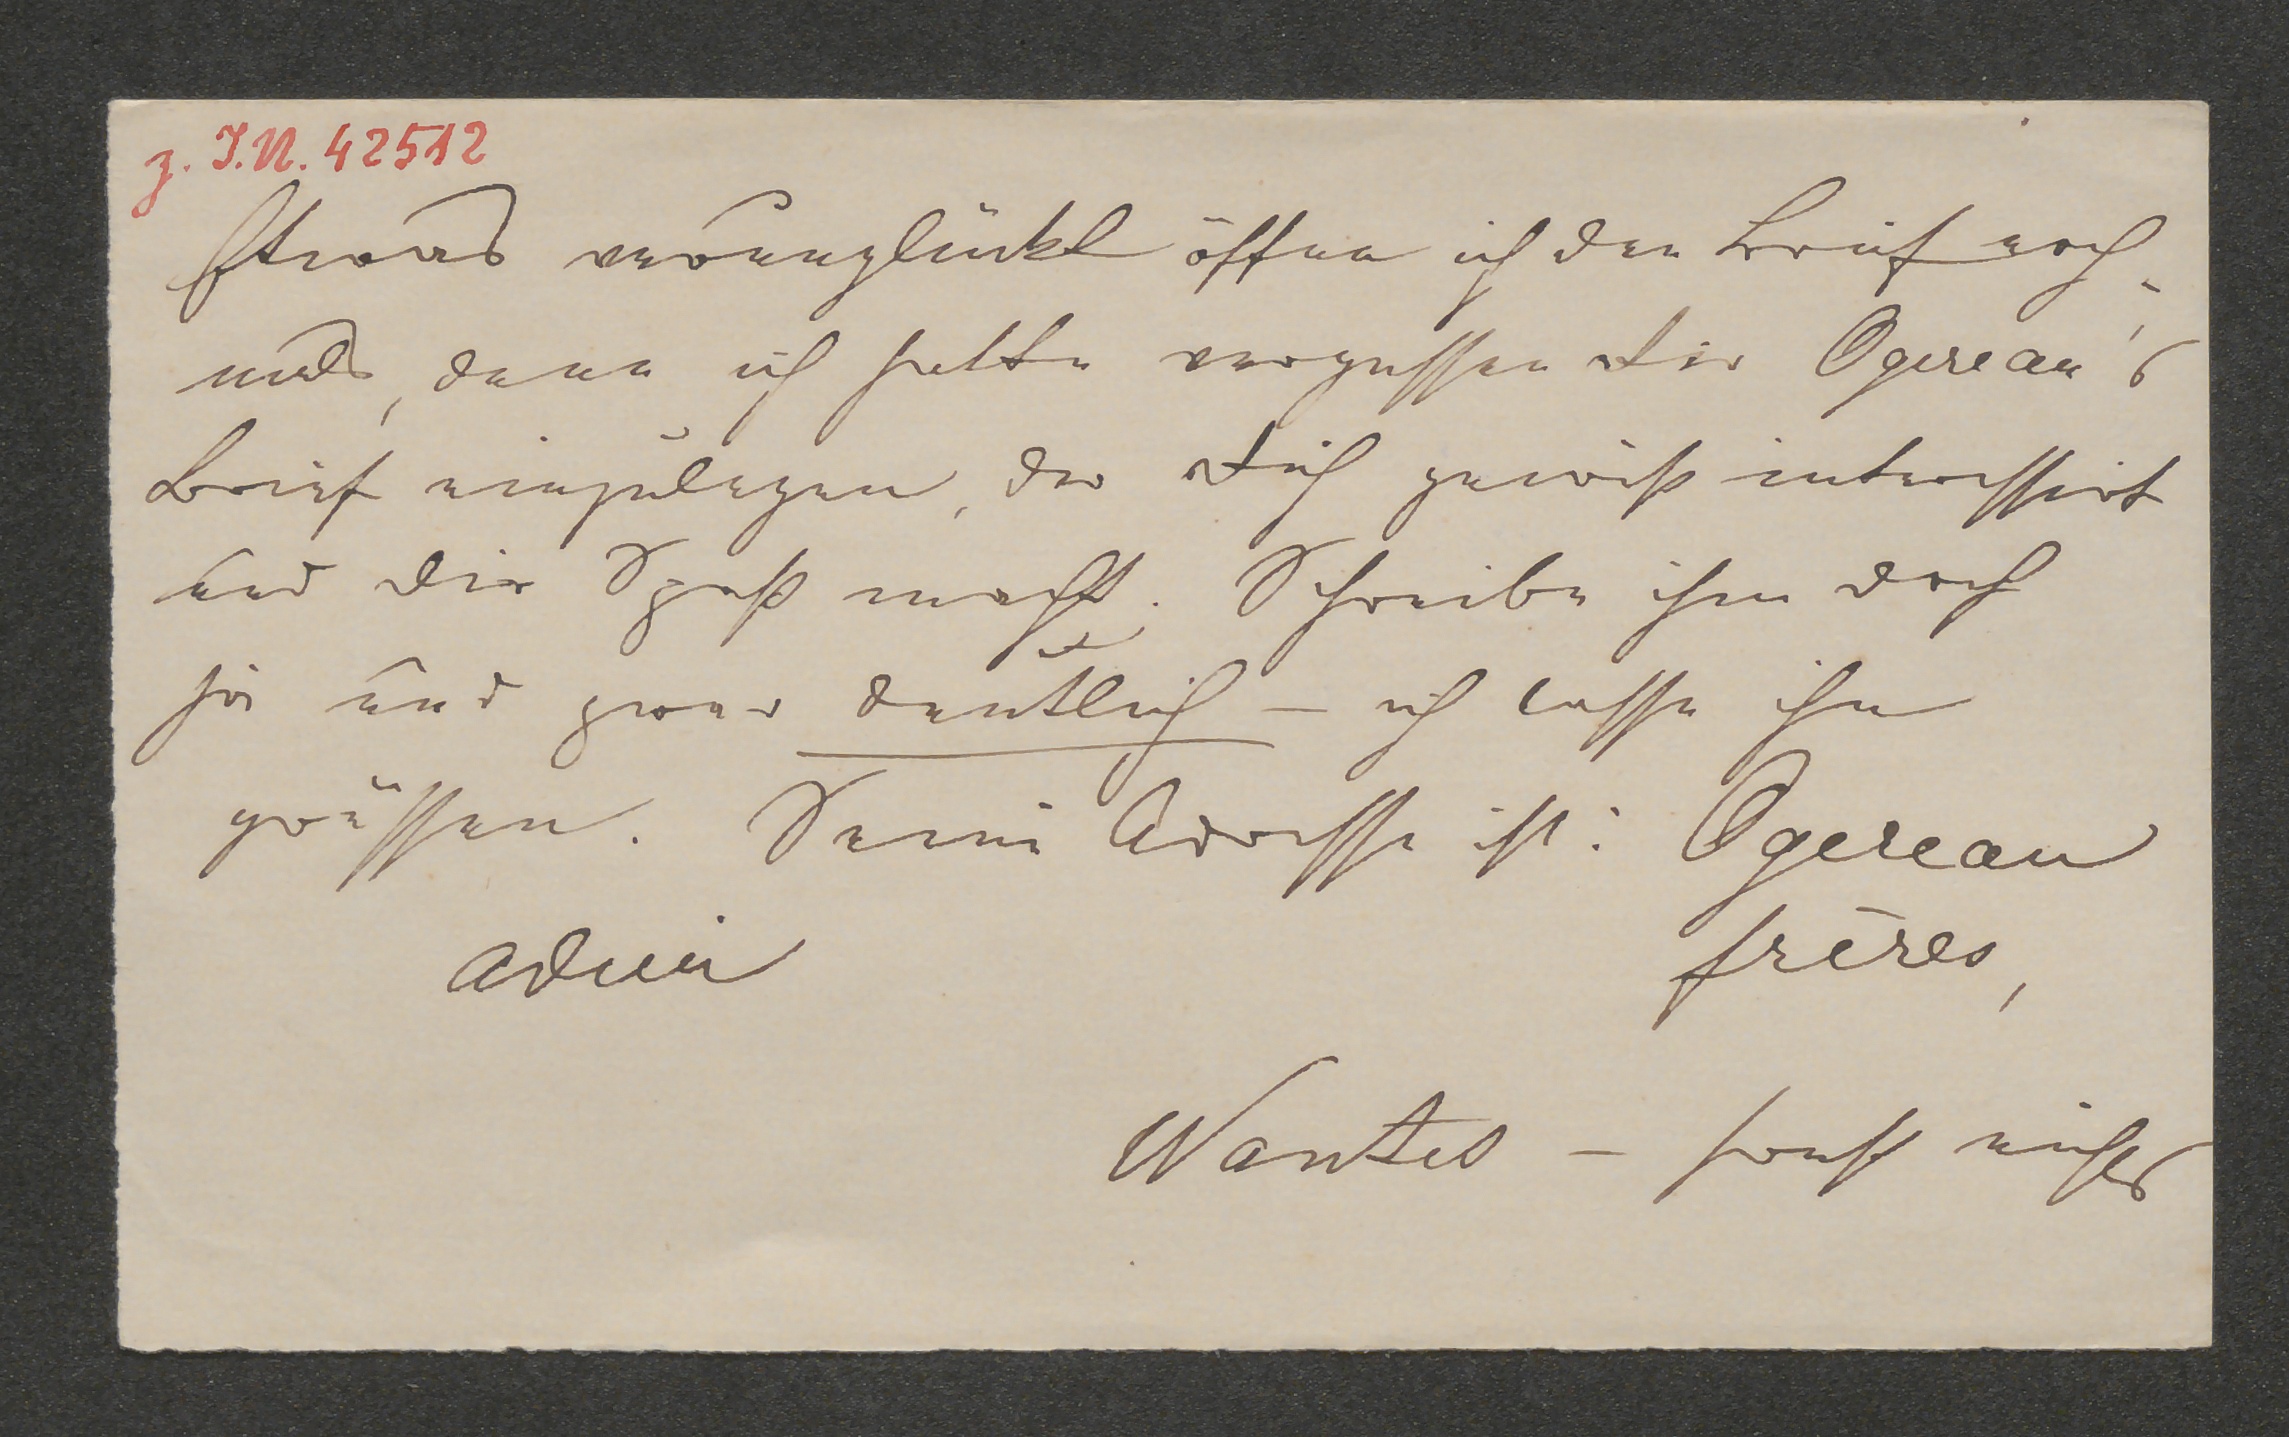 z. I.N. 42512
Etwas verunglückt öffne ich den Brief noch-
mals, denn ich hatte vergessen Dir Ogereau's
Brief einzulegen, der Dich gewiß interessirt
und Dir Spaß macht. Schreibe ihm doch
ja und zwar deutlich – ich lasse ihn
grüssen. Seine Adresse ist: Ogereau
frères,
Nantes – sonst nichts